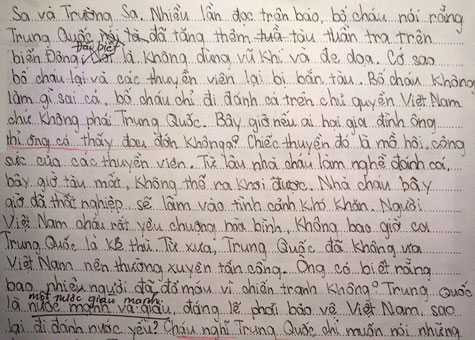 Sa và Trường Sa. Nhiều lần đọc trên báo, bố cháu nói rằng
Trung Quốc nói là đã tăng thêm tuần tàu tuần tra trên
đặc biệt
biển Đông, là không dùng vũ khí và đe dọa. Có sao
bố cháu lại và các thuyền viên lại bị bắn tàu. Bố cháu không
làm gì sai cả, bố cháu chỉ đi đánh cá trên chủ quyền Việt Nam
chứ không phải Trung Quốc. Bây giờ nếu ai hại gia đình ông
thì ông có thấy đau đớn không ạ? Chiếc thuyền đó là mồ hôi, công
sức của các thuyền viên. Từ lâu nhà cháu làm nghề đánh cá,
bây giờ tàu mất, không thể ra khơi được. Nhà cháu bây
giờ đã thất nghiệp, sẽ lâm vào tình cảnh khó khăn. Người
Việt Nam cháu rất yêu chuộng hòa bình, không bao giờ coi
Trung Quốc là kẻ thù. Từ xưa, Trung Quốc đã không ưa
Việt Nam nên thường xuyên tấn công. Ông có biết rằng
bao nhiêu người đã đổ máu vì chiến tranh không? Trung Quốc
một nước giàu mạnh
là nước mạnh và giàu, đáng lẽ phải bảo vệ Việt Nam, sao
lại đi đánh nước yếu? Cháu nghĩ Trung Quốc chỉ muốn nói những